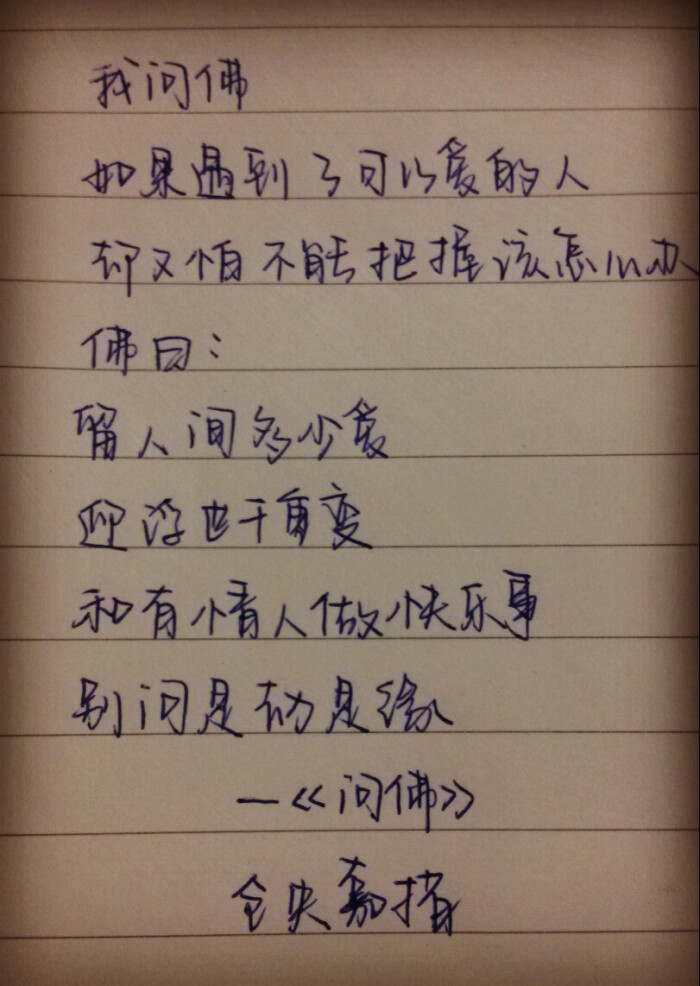 我问佛
如果遇到了可以爱的人
却又怕不能把握该怎么办
佛曰：
留人间多少爱
迎浮世千重变
和有情人做快乐事
别问是劫是缘
—《问佛》
仓央嘉措